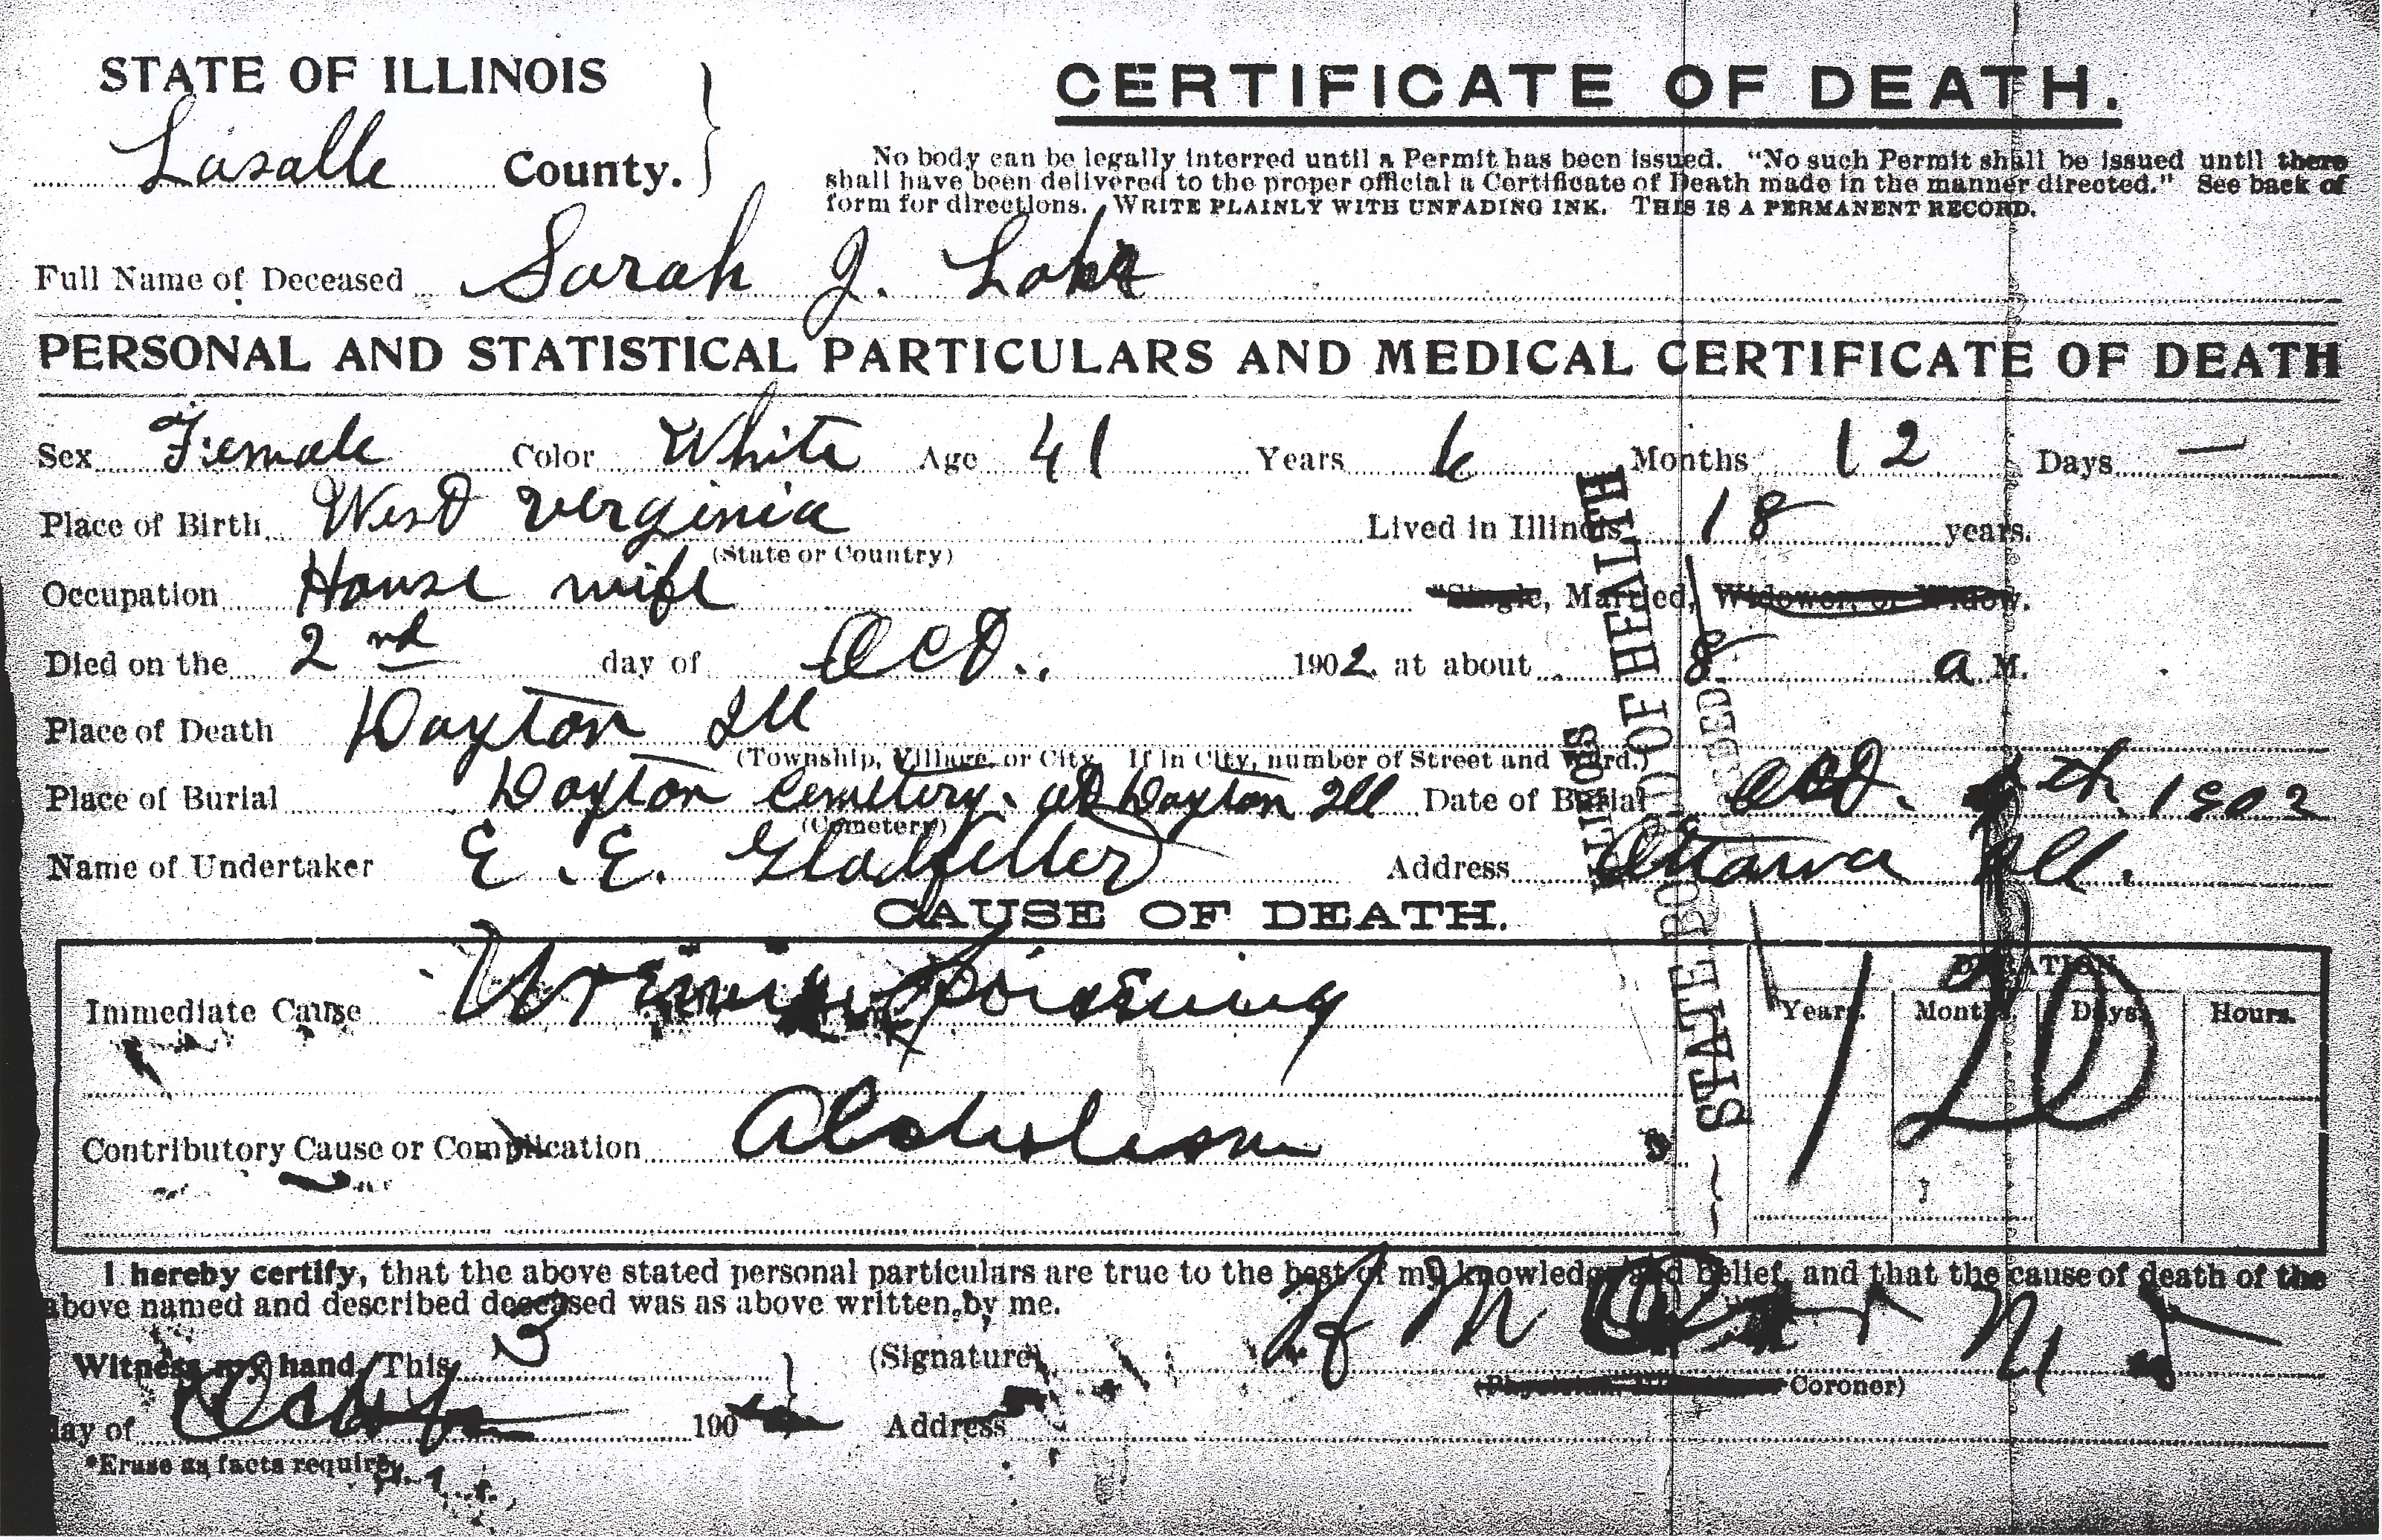 STATE OF ILLINOIS
Lasalle County.
CERTIFICATE OF DEATH.
No body can be legally interred until a Permit has been issued. "No such Permit shall be issued until there
shall have been delivered to the proper official a Certificate of Death made in the manner directed." See back of
form for directions. WRITE PLAINLY WITH UNFADING INK. THIS IS A PERMANENT RECORD.
Full Name of Deceased Sarah J.
PERSONAL AND STATISTICAL PARTICULARS AND MEDICAL CERTIFICATE OF DEATH
Sex Female Color White Age 41 Years 6 Months 12 Days —
Place of Birth West Verginia Lived in Illinois 18 years.
(State or Country)
Occupation House wife *Single, Married, Widower, or Widow.
Died on the 2nd day of Oct., 1902 at about 8 a M.
Place of Death Dayton Ill
(Township, Village, or City. If in City, number of Street and Ward.)
Place of Burial Dayton Cemetery. at Dayton Ill Date of Burial Oct. th 1902
(Cemetery)
Name of Undertaker E. E. Gladfelter Address Ottawa Ill.
CAUSE OF DEATH.
DURATION
Immediate Cause Poisoning Years. Months. Days. Hours.
Contributory Cause or Complication Alcoholism
ILLINOIS
STATE BOARD OF HEALTH
I hereby certify, that the above stated personal particulars are true to the best of my knowledge and belief, and that the cause of death of the
above named and described deceased was as above written by me.
Witness my hand This 3 (Signature)
Coroner)
day of 190 Address
*Erase as facts require.